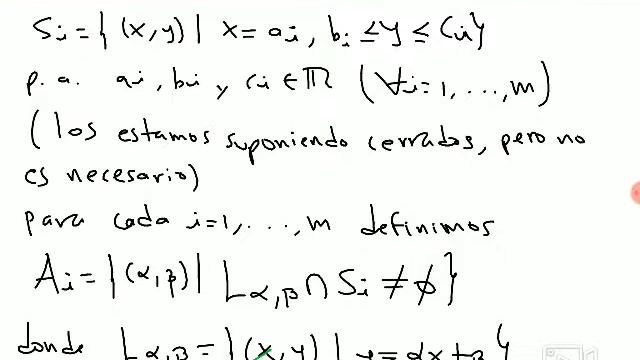 Si = { (x,y) | x = ai, bi ≤ y ≤ ci}
p. a. ai, bi y ci ∈ ℝ (∀i=1,...,m)
(los estamos suponiendo cerrados, pero no
es necesario)
para cada i=1,...,m definimos
Ai = { (α,β) | Lα,β ∩ Si ≠ ∅ }
donde Lα,β = { (x,y) | y = αx+β }